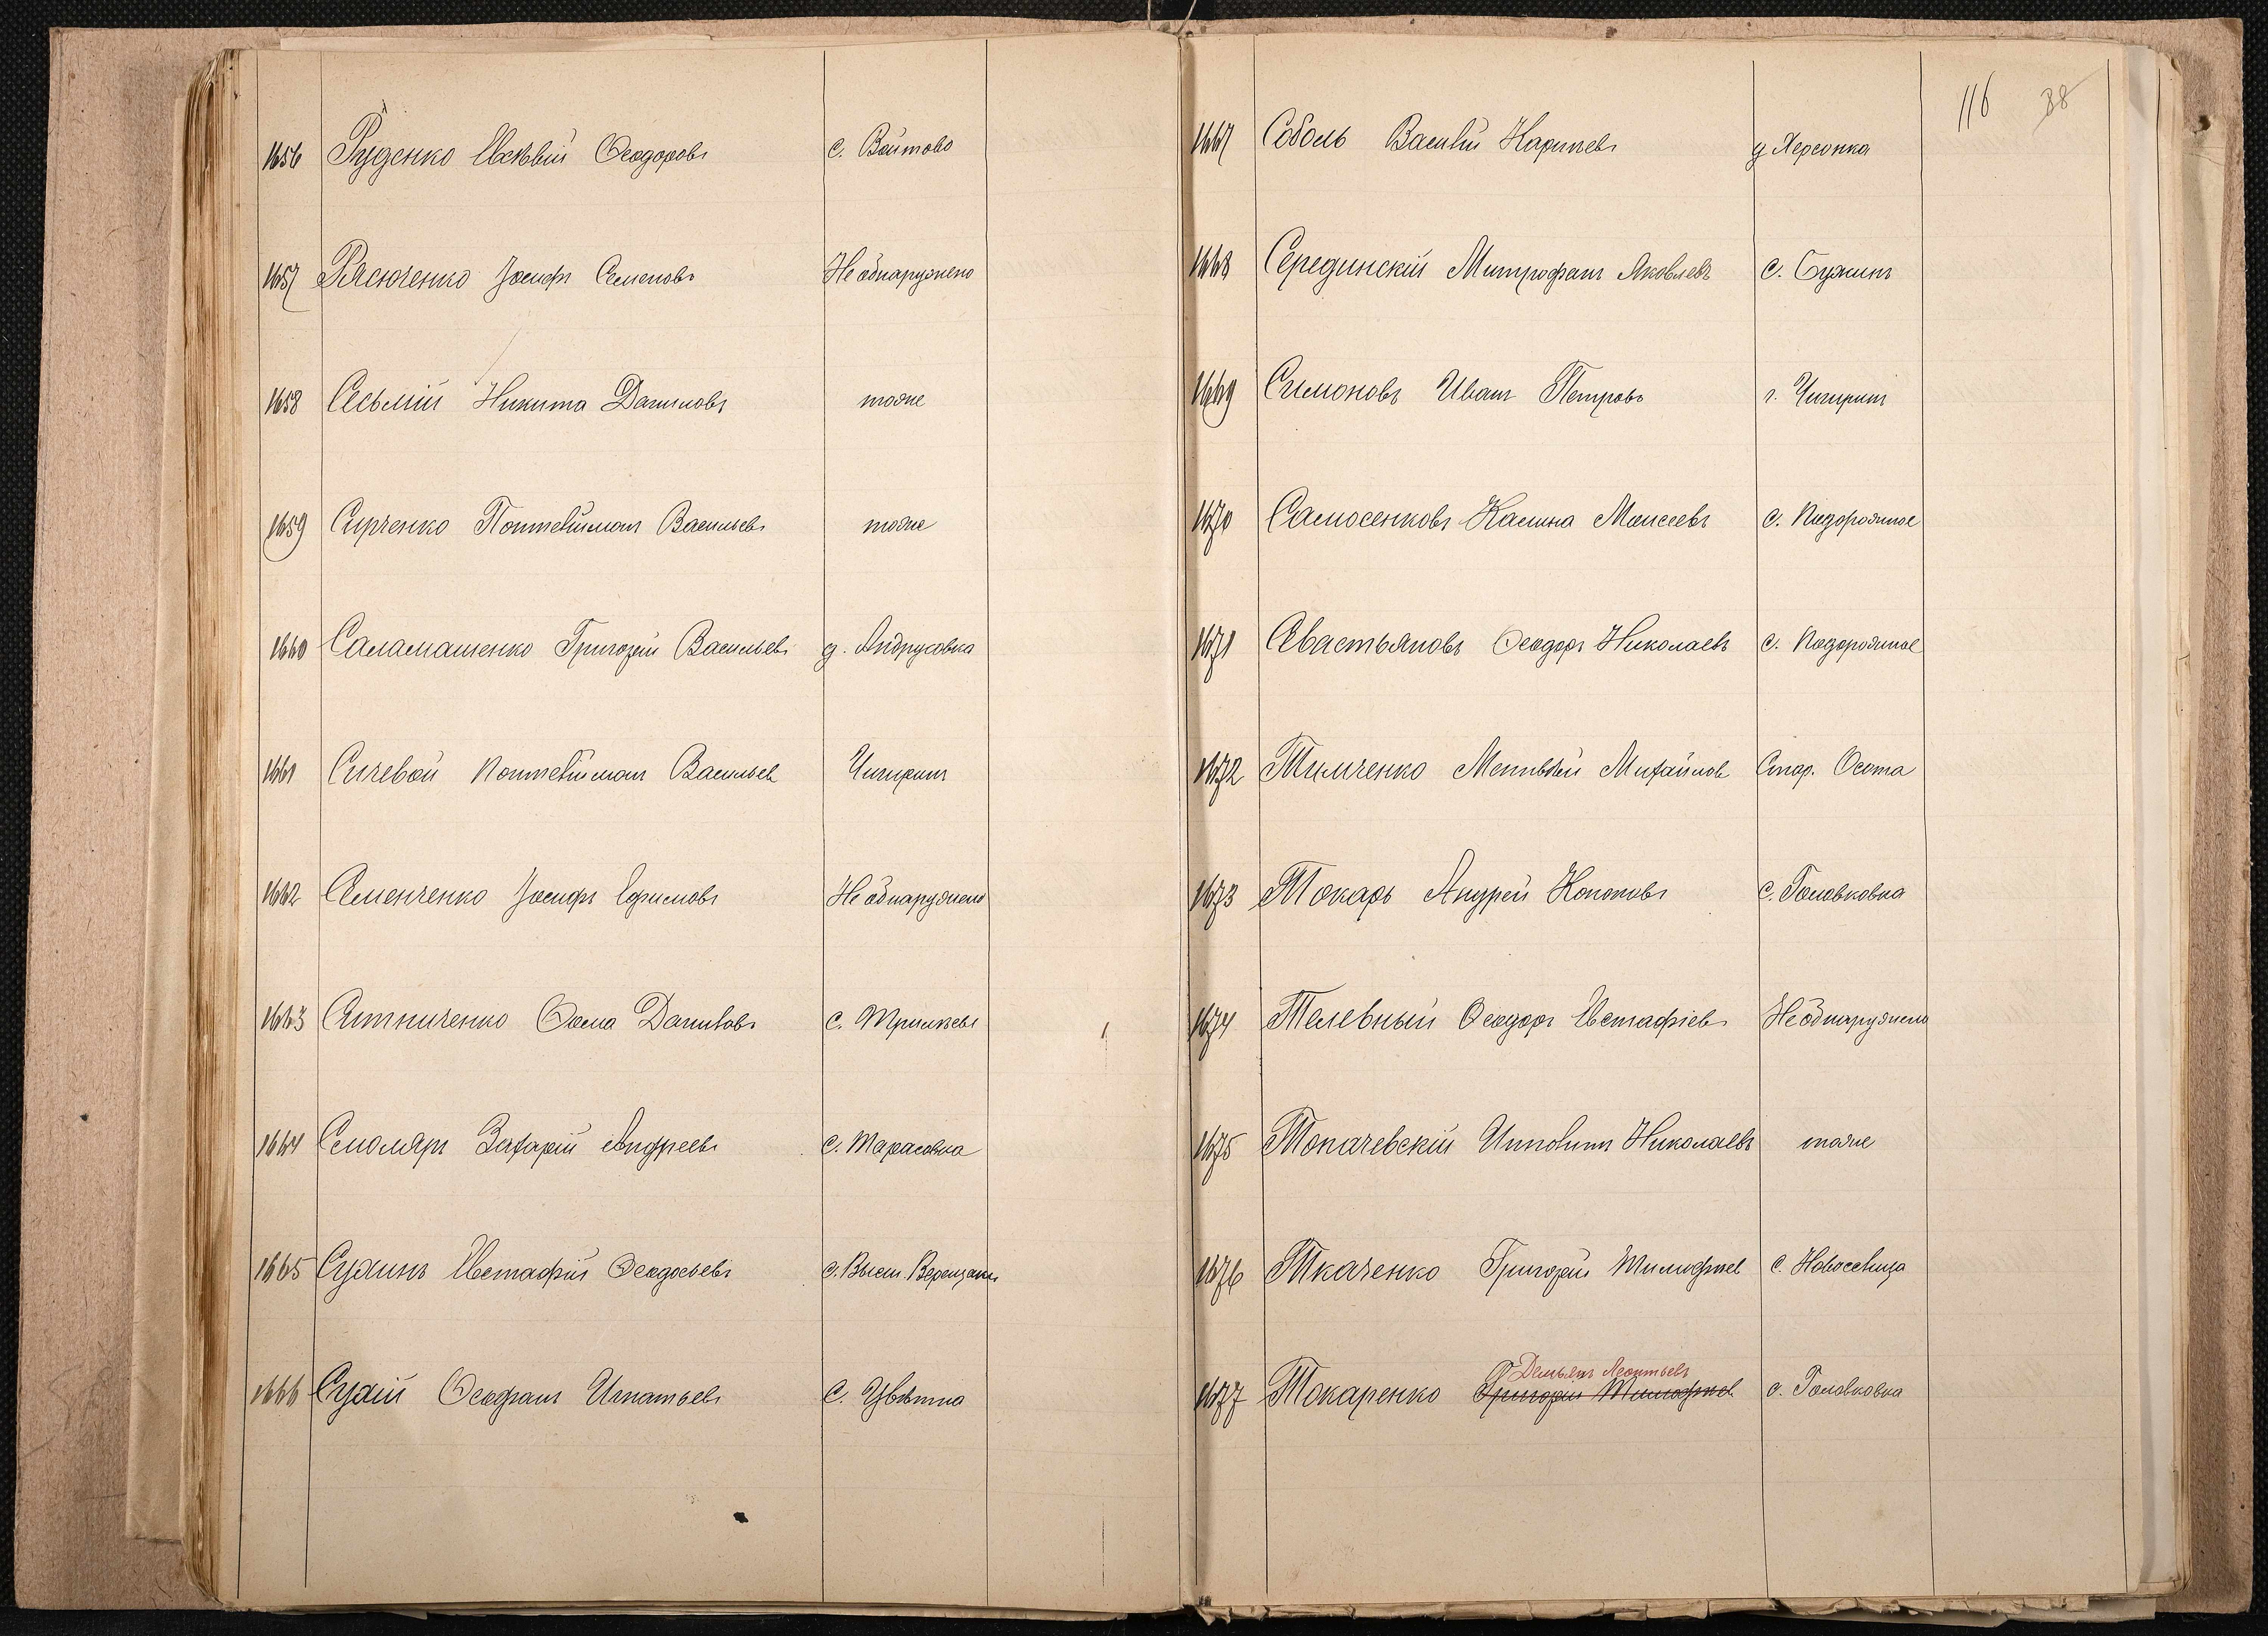 1656 Руденко Евсѣвій Ѳеодоровъ с. Войтово
1657 Рясюченко Іосифъ Семеновъ Не обнаружено
1658 Сесьмій Никита Даниловъ тоже
1659 Сирченко Пантелеймонъ Васильевъ тоже
1660 Саламашенко Григорій Васильевъ д. Андрусовка
1661 Сичевой Пантелеймонъ Васильев Чигиринъ
1662 Семенченко Іосифъ Ефимовъ Не обнаружено
1663 Ситниченко Ѳома Даниловъ с. Трилѣсы
1664 Смоляръ Захарій Андреевъ с. Тарасовка
1665 Суминъ Евстафій Ѳеодосьевъ с. Высш. Верещаки
1666 Судій Ѳеофанъ Игнатьевъ с. Цвѣтна
116 38
1667 Соболь Василій Карпьевъ д Херсонка
1668 Серединскій Митрофанъ Яковлевъ с. Бужинъ
1669 Симоновъ Иванъ Петровъ г. Чигиринъ
1670 Самосенковъ Калина Моисеевъ с. Подорожное
1671 Севастьяновъ Ѳеодоръ Николаевъ с. Подорожное
1672 Тимченко Михайлов Стар. Осота
1673 Токарь Андрей Кононовъ с. Головковка
1674 Телевный Ѳеодоръ Евстафіевъ Не обнаружено
1675 Топачевскій Ипполитъ Николаевъ тоже
1676 Ткаченко Григорій Тимофеев с. Новоселица
Демьянъ Леонтьевъ
1677 Токаренко Григорій Тимофеев с. Головковка